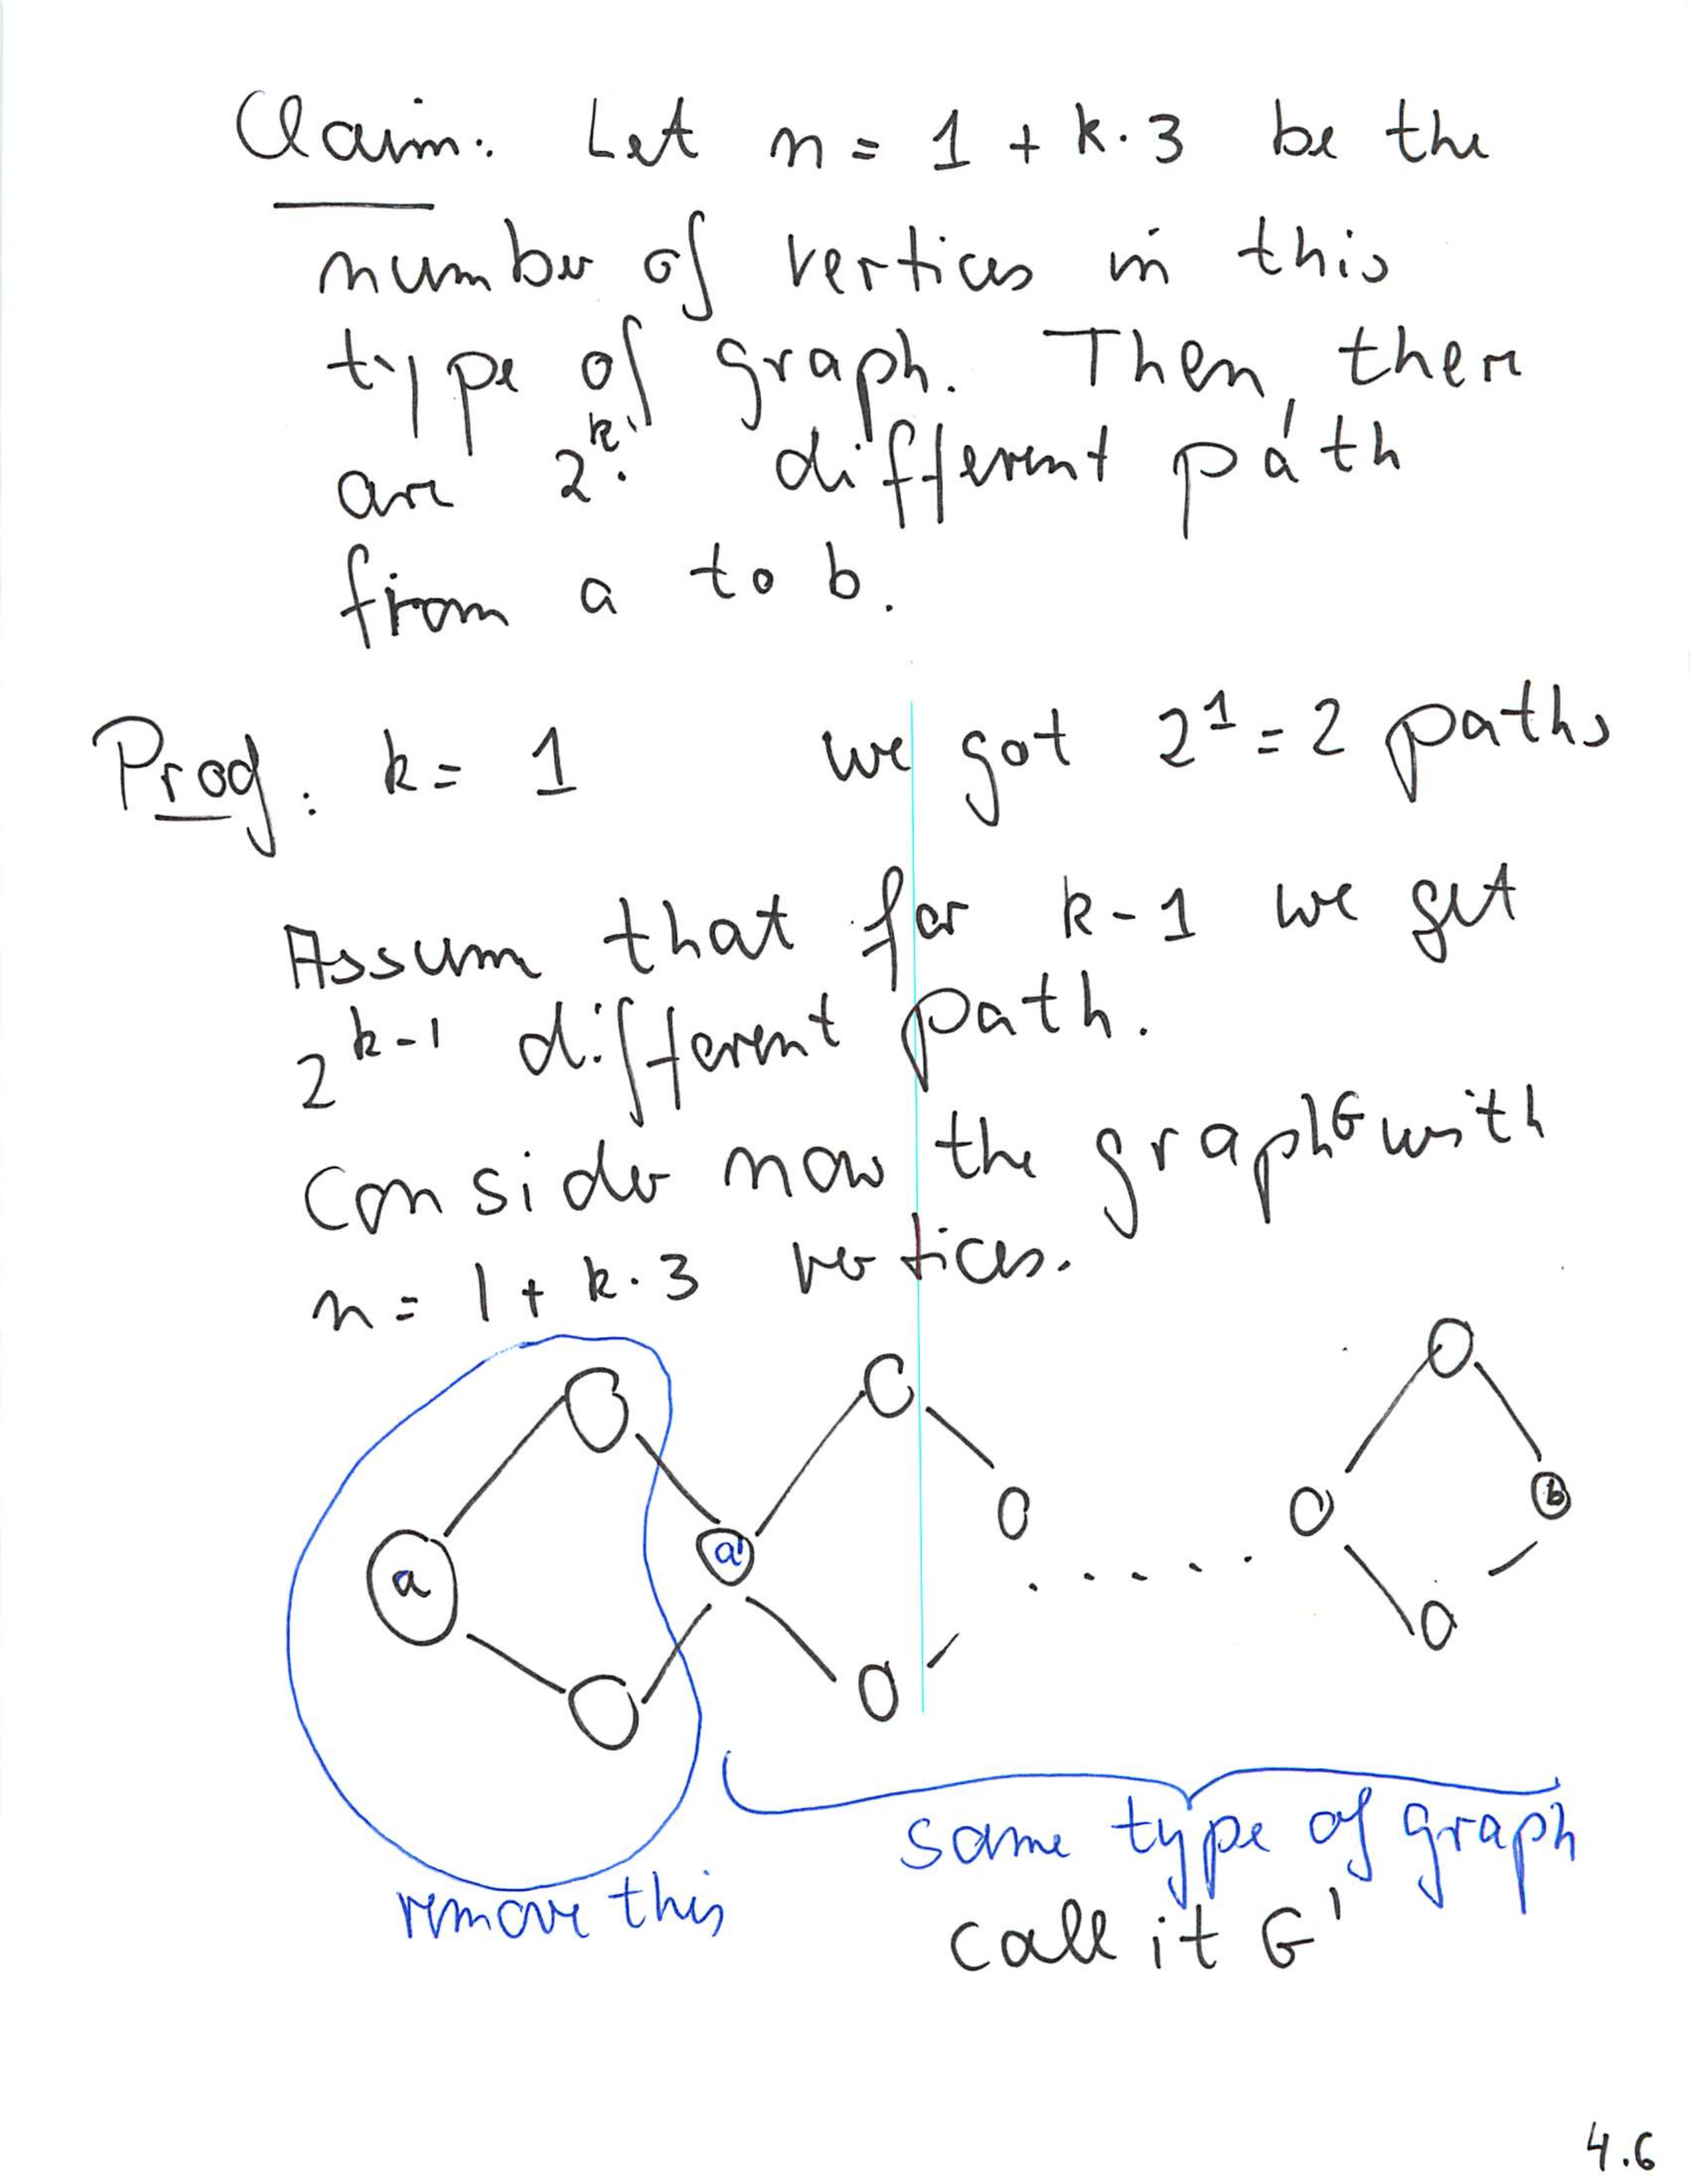 Claim: Let n = 1 + k·3 be the
number of vertices in this
type of graph. Then, there
are 2^k different path
from a to b.
Proof: k = 1 we got 2^1 = 2 paths
Assum that for k-1 we get
2^k-1 different path.
Consider now the graph G with
n = 1 + k·3 vertices.
a
a'
b
same type of graph
remove this
call it G'
4.6